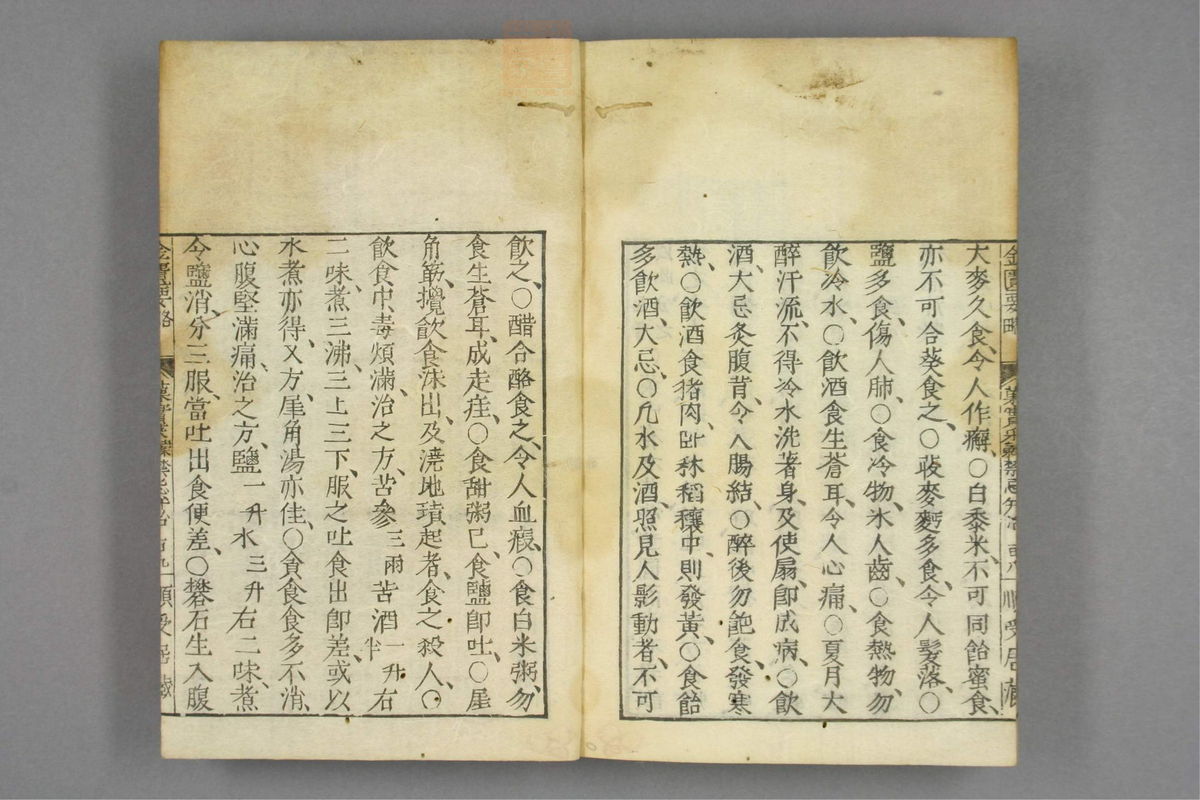 大麥久食令人作癬、○白黍米、不可同飴蜜食、
亦不可合葵食之、○荍麥麪多食、令人髮落、○
鹽多食、傷人肺、○食冷物、氷人齒、○食熱物、勿
飲冷水、○飲酒食生蒼耳、令人心痛、○夏月大
醉汗流、不得冷水洗著身、及使扇、卽成病、○飲
酒、大忌灸腹背、令人腸結、○醉後勿飽食、發寒
熱、○飲酒食猪肉、臥秫稻穰中、則發黃、○食飴
多飲酒、大忌、○凡水及酒、照見人影動者、不可
飲之、○醋合酪食之、令人血瘕、○食白米粥、勿
食生蒼耳、成走疰、○食甜粥已、食鹽卽吐、○犀
角觔、攪飲食沫出、及澆地墳起者、食之殺人、○
飲食中毒煩滿、治之方、苦參三兩苦酒一升半右
二味、煮三沸、三上三下、服之吐食出卽差、或以
水煮亦得、又方、犀角湯亦佳、○貪食食多不消、
心腹堅滿痛、治之方、鹽一升水三升右二味、煮
令鹽消、分三服、當吐出食便差、○礬石生入腹
金匱要略
順受居藏